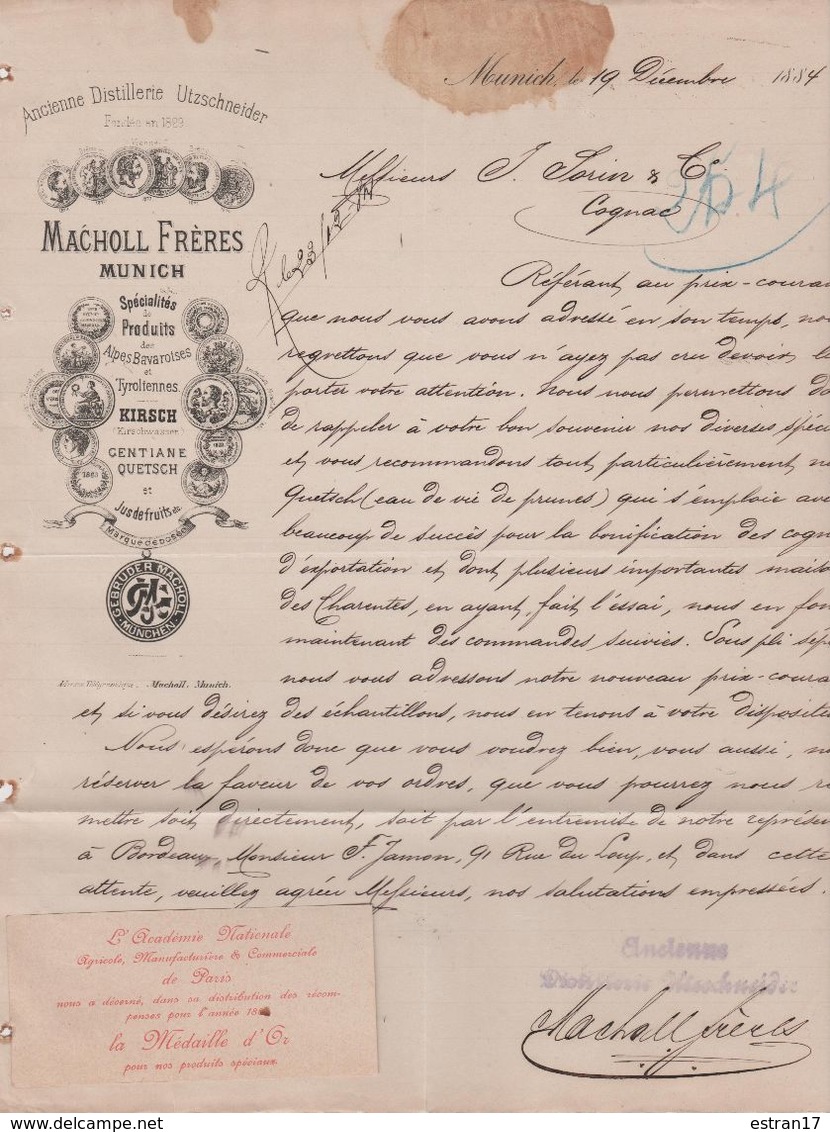 Ancienne Distillerie Utzschneider
Fondée en 1829
MACHOLL FRÈRES
MUNICH
Spécialités
de
Produits
des
Alpes Bavaroises
et
Tyroliennes.
KIRSCH
(Kirschwasser)
GENTIANE
QUETSCH
et
Jus de fruits etc
1883
Marque déposée
GEBRÜDER MACHOLL
MÜNCHEN
Adresse Télégraphique, Macholl, Munich.
Munich, le 19 Décembre 1884
Messieurs J. Sorin & Cº
Cognac
le 23/12 84
Référant au prix-couran
que nous vous avons adressé en son temps, nou
regrettons que vous n'ayez pas cru devoir
porter votre attention. Nous nous permettons do
de rappeler à votre bon souvenir nos diverses spéci
et vous recommandons tout particulièrement
Quetsch (eau de vie de prunes) qui s'emploie ave
beaucoup de succès pour la bonification des cogn
d'exportation et dont plusieurs importantes maiso
des Charentes, en ayant fait l'essai, nous en fon
maintenant des commandes suivies. Sous pli sép
nous vous adressons notre nouveau prix-coura
et si vous désirez des échantillons, nous en tenons à votre dispositio
Nous espérons donc que vous voudrez bien, vous aussi, n
réserver la faveur de vos ordres, que vous pourrez nous r
mettre soit directement, soit par l'entremise de notre représen
à Bordeaux, Monsieur F. Jamon, 91 Rue du Loup, et dans cette
attente, veuillez agréer Messieurs, nos salutations empressées.
Ancienne
Distillerie Utzschneider
Macholl frères
L'Académie Nationale
Agricole, Manufacturière & Commerciale
de Paris
nous a décerné, dans sa distribution des récom-
penses pour l'année
la Médaille d'Or
pour nos produits spéciaux.
estran17